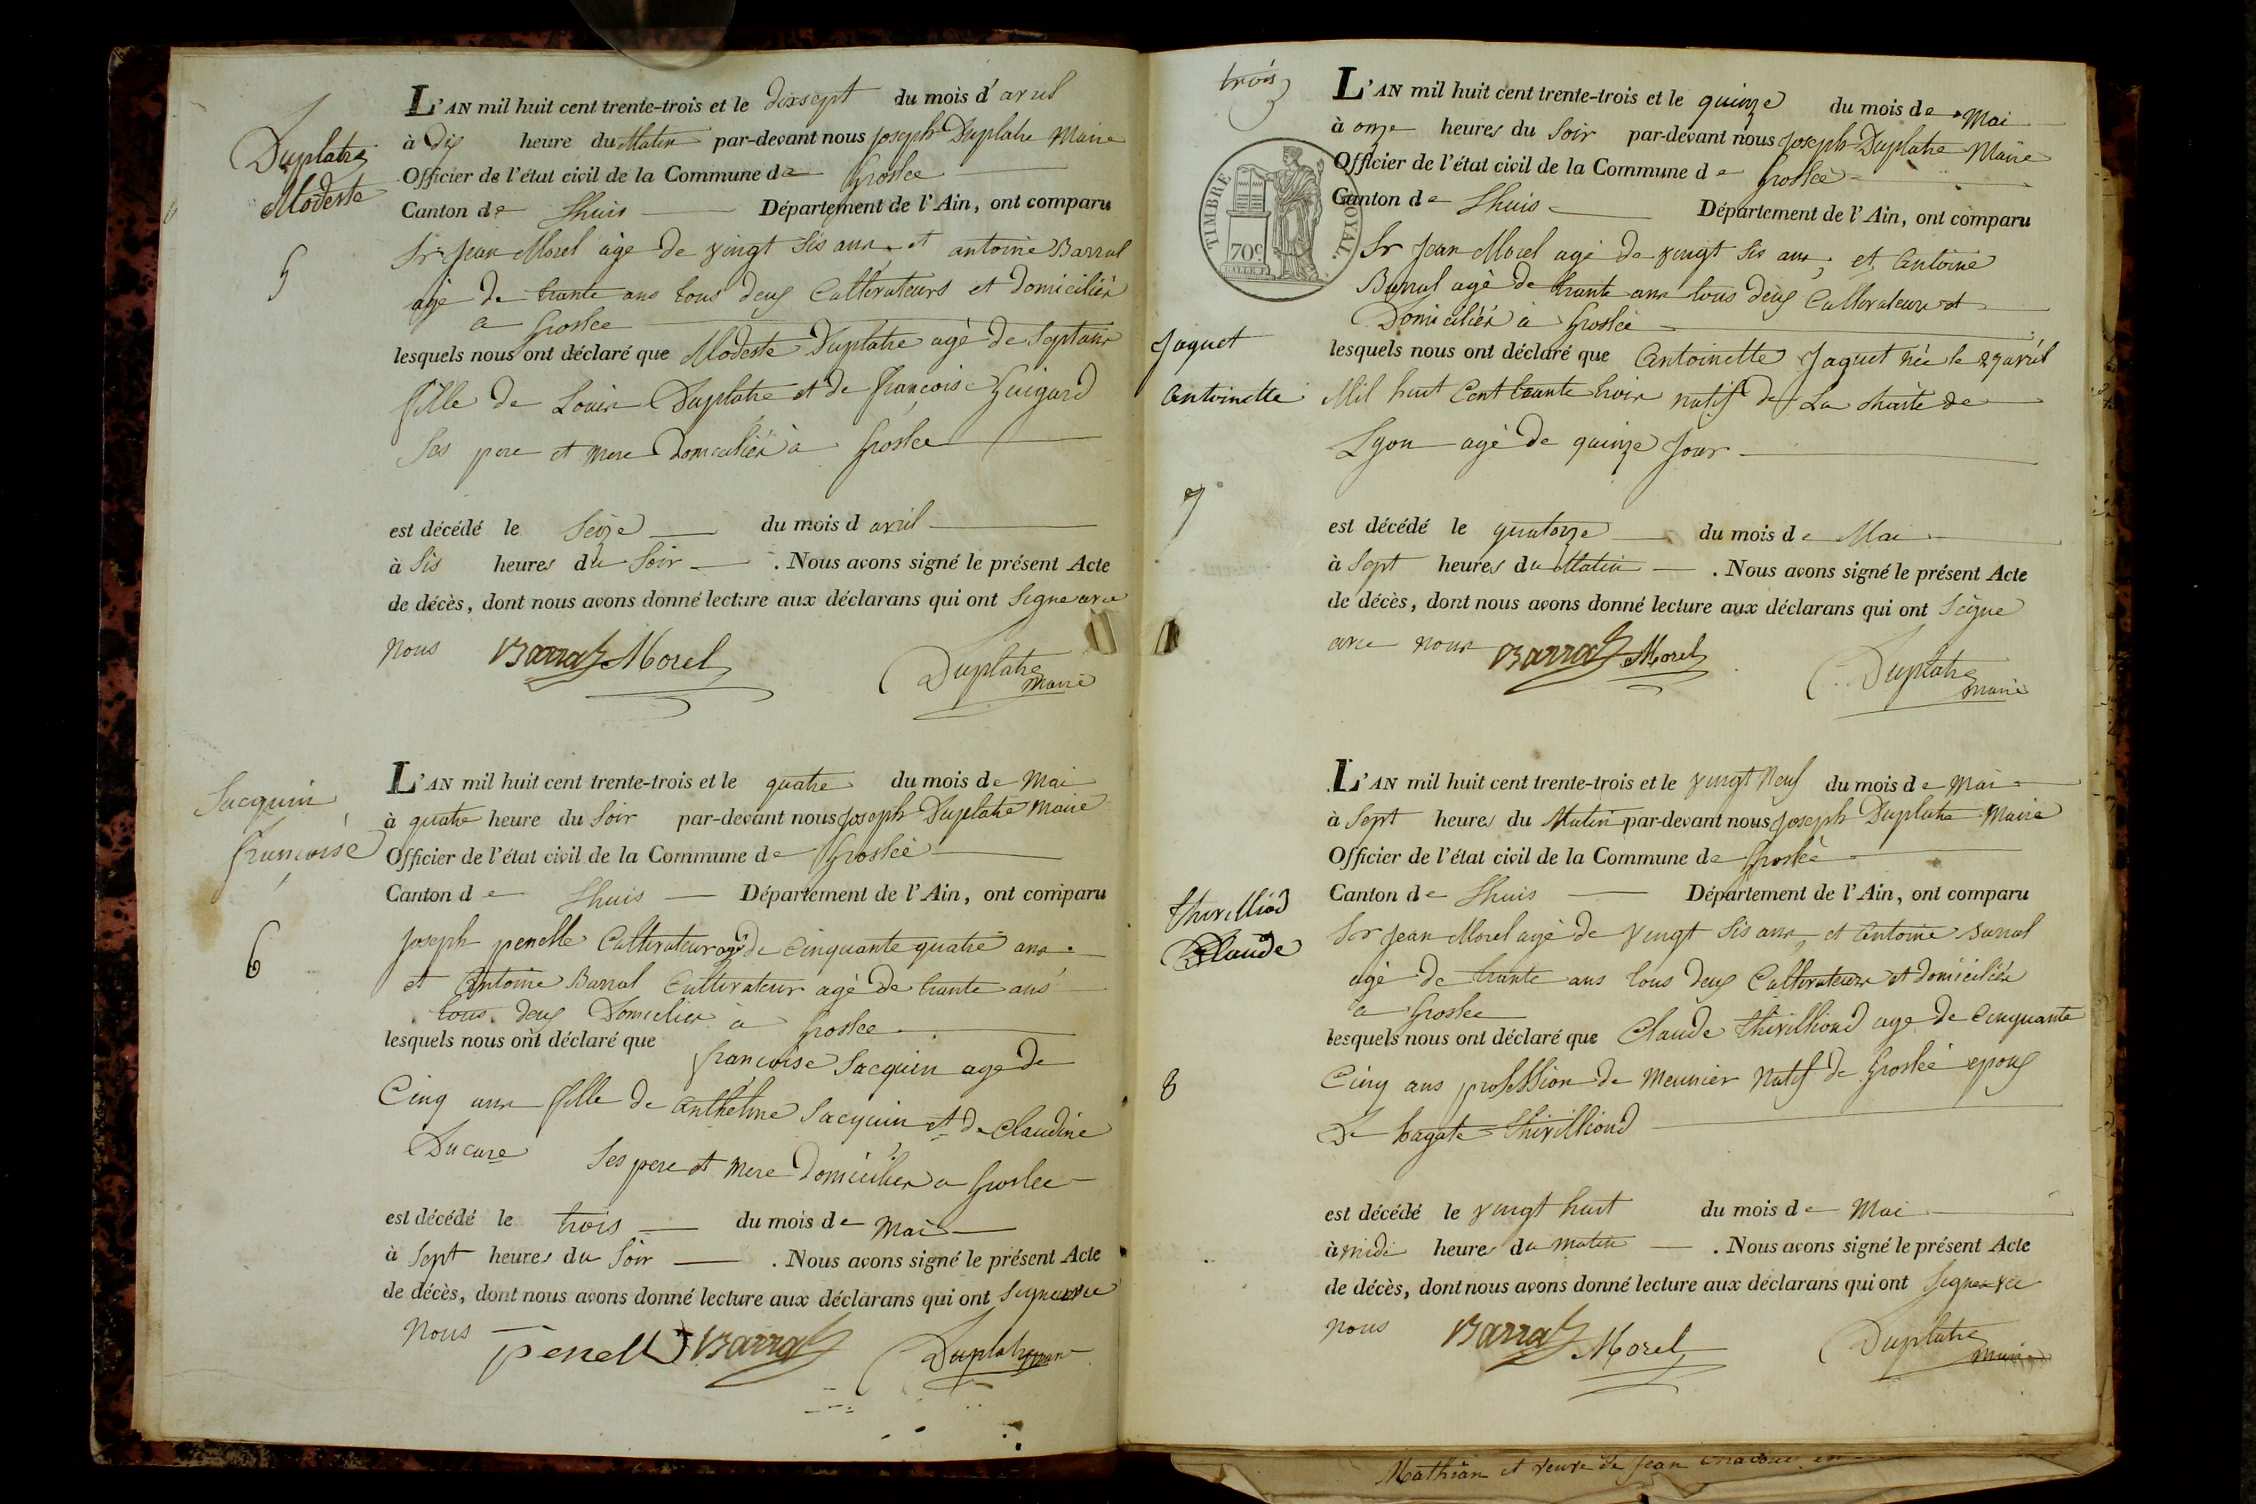 Duplatre
Modeste
5
L'AN mil huit cent trente-trois et le dixsept du mois d'avril
à Dix heure du Matin par-devant nous Joseph Duplatre Maire
Officier de l'état civil de la Commune de Groslée
Canton de Lhuis Département de l'Ain, ont comparu
Sr Jean Morel agé de vingt sis ans et antoine Barral
agé de trante ans tous deux Cultivateurs et domiciliés
a Groslee
lesquels nous ont déclaré que Modeste Duplatre agé de Sept ans
fille de Louis Duplatre et de françoise Guigard
Ses pere et mere domiciliés à Groslee
est décédé le Seize du mois d avril
à Sis heures du Soir . Nous avons signé le présent Acte
de décès, dont nous avons donné lecture aux déclarans qui ont Signe avec
nous Barral Morel Duplatre
Maire
Jacquin
françoise
6
L'AN mil huit cent trente-trois et le quatre du mois de Mai
à quatre heure du Soir par-devant nous Joseph Duplatre Maire
Officier de l'état civil de la Commune de Groslée
Canton de Lhuis Département de l'Ain, ont comparu
Joseph penelle Cultivateur agé de Cinquante quatre ans
et Antoine Barral Cultivateur agé de trante ans
tous deux Domicilies a Groslee
lesquels nous ont déclaré que
françoise Jacquin age de
Cinq ans fille de Anthelme Jacquin et de Claudine
Ducare Ses pere et mere domicilies a Groslee
est décédé le trois du mois de Mai
à Sept heures du Soir . Nous avons signé le présent Acte
de décès, dont nous avons donné lecture aux déclarans qui ont Signe avec
Nous penelle Barral Duplatre maire
trois
TIMBRE ROYAL
70c
L'AN mil huit cent trente-trois et le quinze du mois de Mai
à onze heures du Soir par-devant nous Joseph Duplatre Maire
Officier de l'état civil de la Commune de Groslée
Canton de Lhuis Département de l'Ain, ont comparu
Sr Jean Morel agé de vingt sis ans, et Antoine
Barral agé de trante ans tous deux Cultivateurs et
Domiciliés à Groslée
Jaquet
Antoinette
7
lesquels nous ont déclaré que Antoinette Jaquet née le 29 avril
Mil huit Cent trante trois natif de La charite de
Lyon agé de quinze Jour
est décédé le quatorze du mois de Mai
à Sept heures du Matin . Nous avons signé le présent Acte
de décès, dont nous avons donné lecture aux déclarans qui ont Signe
avec nous Barral Morel Duplatre
maire
L'AN mil huit cent trente-trois et le vingt Neuf du mois de Mai
à Sept heures du Matin par-devant nous Joseph Duplatre Maire
Officier de l'état civil de la Commune de Groslée
Canton de Lhuis Département de l'Ain, ont comparu
thivilliod
Claude
8
Sr Jean Morel agé de vingt sis ans, et Antoine Barral
agé de trante ans tous deux Cultivateurs et domiciliés
a Groslee
lesquels nous ont déclaré que Claude thivilliond age de Cinquante
Cinq ans profession de Meunier Natif de Groslée epoux
De hagate thivilliond
est décédé le vingt huit du mois de Mai
à midi heures du matin . Nous avons signé le présent Acte
de décès, dont nous avons donné lecture aux déclarans qui ont Signe avec
nous Barral Morel Duplatre
maire
Mathian et veuve de Jean